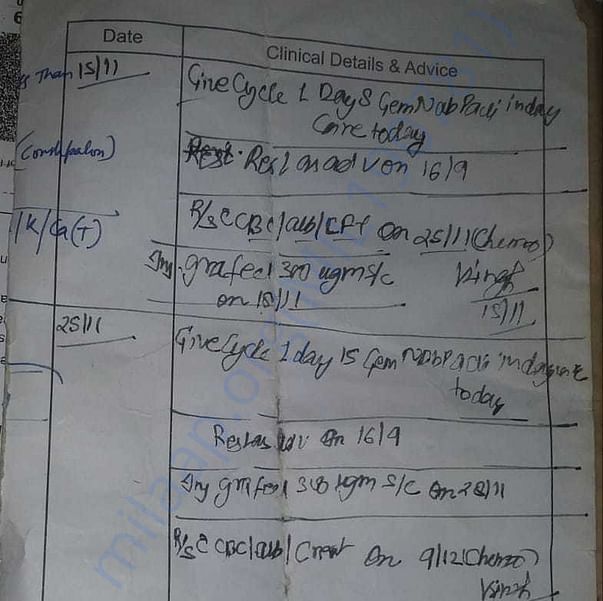 Date
Clinical Details & Advice
Than 15/11
Give Cycle 1 Day 8 Gem Nab Pacli in day
Care today
(Constipation)
Rest on adv on 16/9
/K/Ca(T)
R/s c CBC/alb/LFT on 25/11 (Chemo)
Inj. grafeel 300 ugm s/c
on 18/11
15/11
25/11
Give Cycle 1 day 15 Gem Nab Pacli in daycare
today
Rest as adv on 16/9
Inj grafeel 300 ugm s/c on 28/11
R/s c CBC/alb/Creat on 9/12 (Chemo)
milaap.org